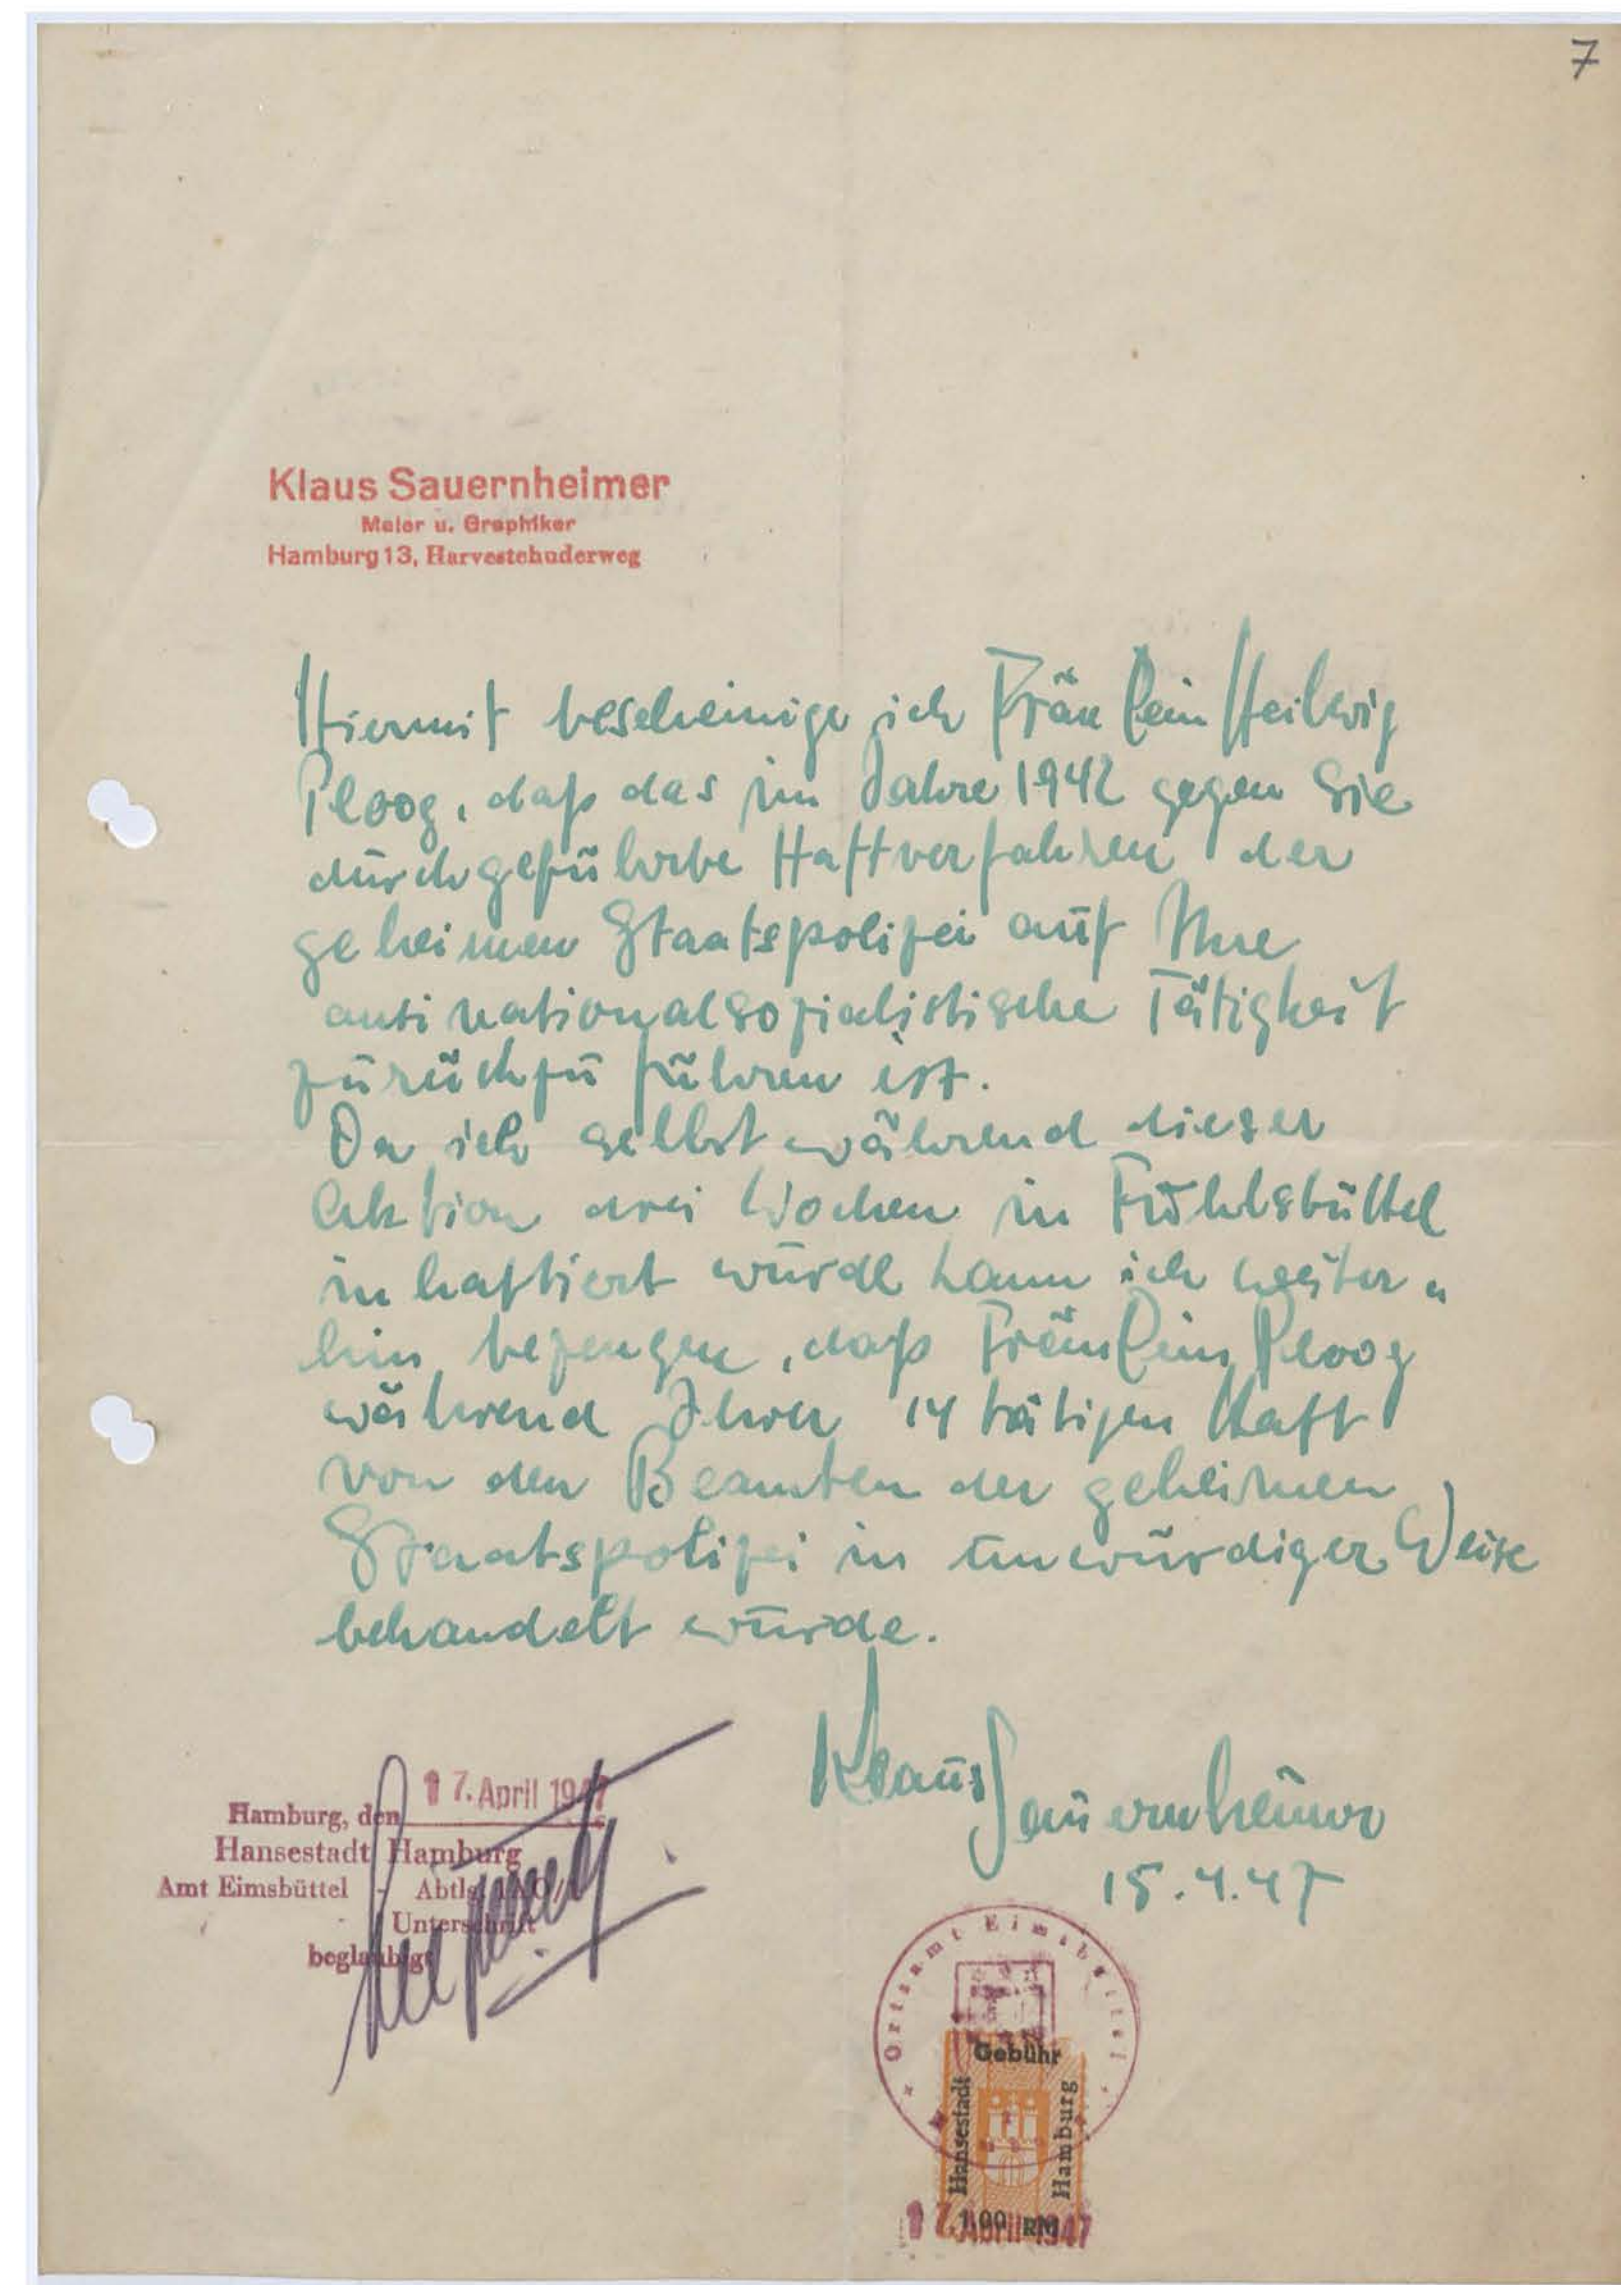 7
Klaus Sauernheimer
Maler u. Graphiker
Hamburg 13, Harvestehuderweg
Hiermit bescheinige ich Fräulein Heilwig
Ploog, daß das im Jahre 1942 gegen Sie
durchgeführte Haftverfahren der
geheimen Staatspolizei auf Ihre
antinationalsozialistische Tätigkeit
zurückzuführen ist.
Da ich selbst während dieser
Aktion drei Wochen in Fuhlsbüttel
inhaftiert wurde kann ich weiter-
hin bezeugen, daß Fräulein Ploog
während Ihrer 14 tätigen Haft
von den Beamten der geheimen
Staatspolizei in unwürdiger Weise
behandelt wurde.
Klaus Sauernheimer
15.4.47
17. April 1947
Hamburg, den
Hansestadt Hamburg
Amt Eimsbüttel - Abtlg.
Unterschrift
beglaubigt
Ortsamt Eimsbüttel
Gebühr
Hansestadt
Hamburg
1,00 RM
17. April 1947